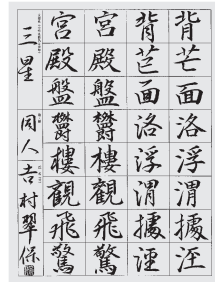 背芒面洛浮渭據涇
背芒面洛浮渭據涇
宮殿盤鬱樓觀飛驚
宮殿盤鬱樓觀飛驚
三星 同人 吉村翠保